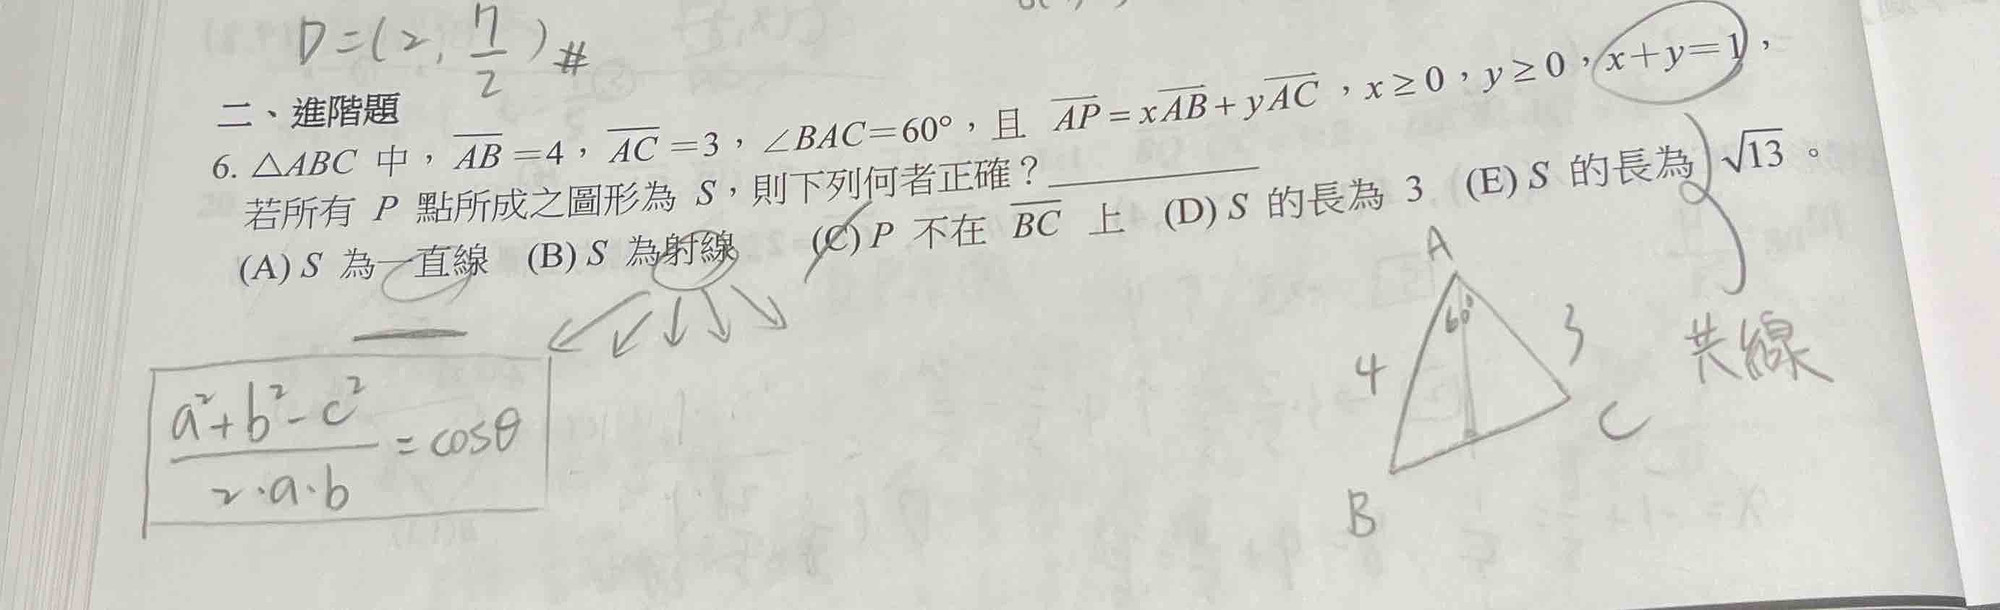 D=(2, 7/2)#
二、進階題
6. △ABC 中，AB=4，AC=3，∠BAC=60°，且 AP=xAB+yAC，x≥0，y≥0，x+y=1，
若所有 P 點所成之圖形為 S，則下列何者正確？
(A) S 為一直線 (B) S 為射線 (C) P 不在 BC 上 (D) S 的長為 3 (E) S 的長為 √13。
A
60°
4
3
B
C
共線
a²+b²-c² / 2·a·b = cosθ